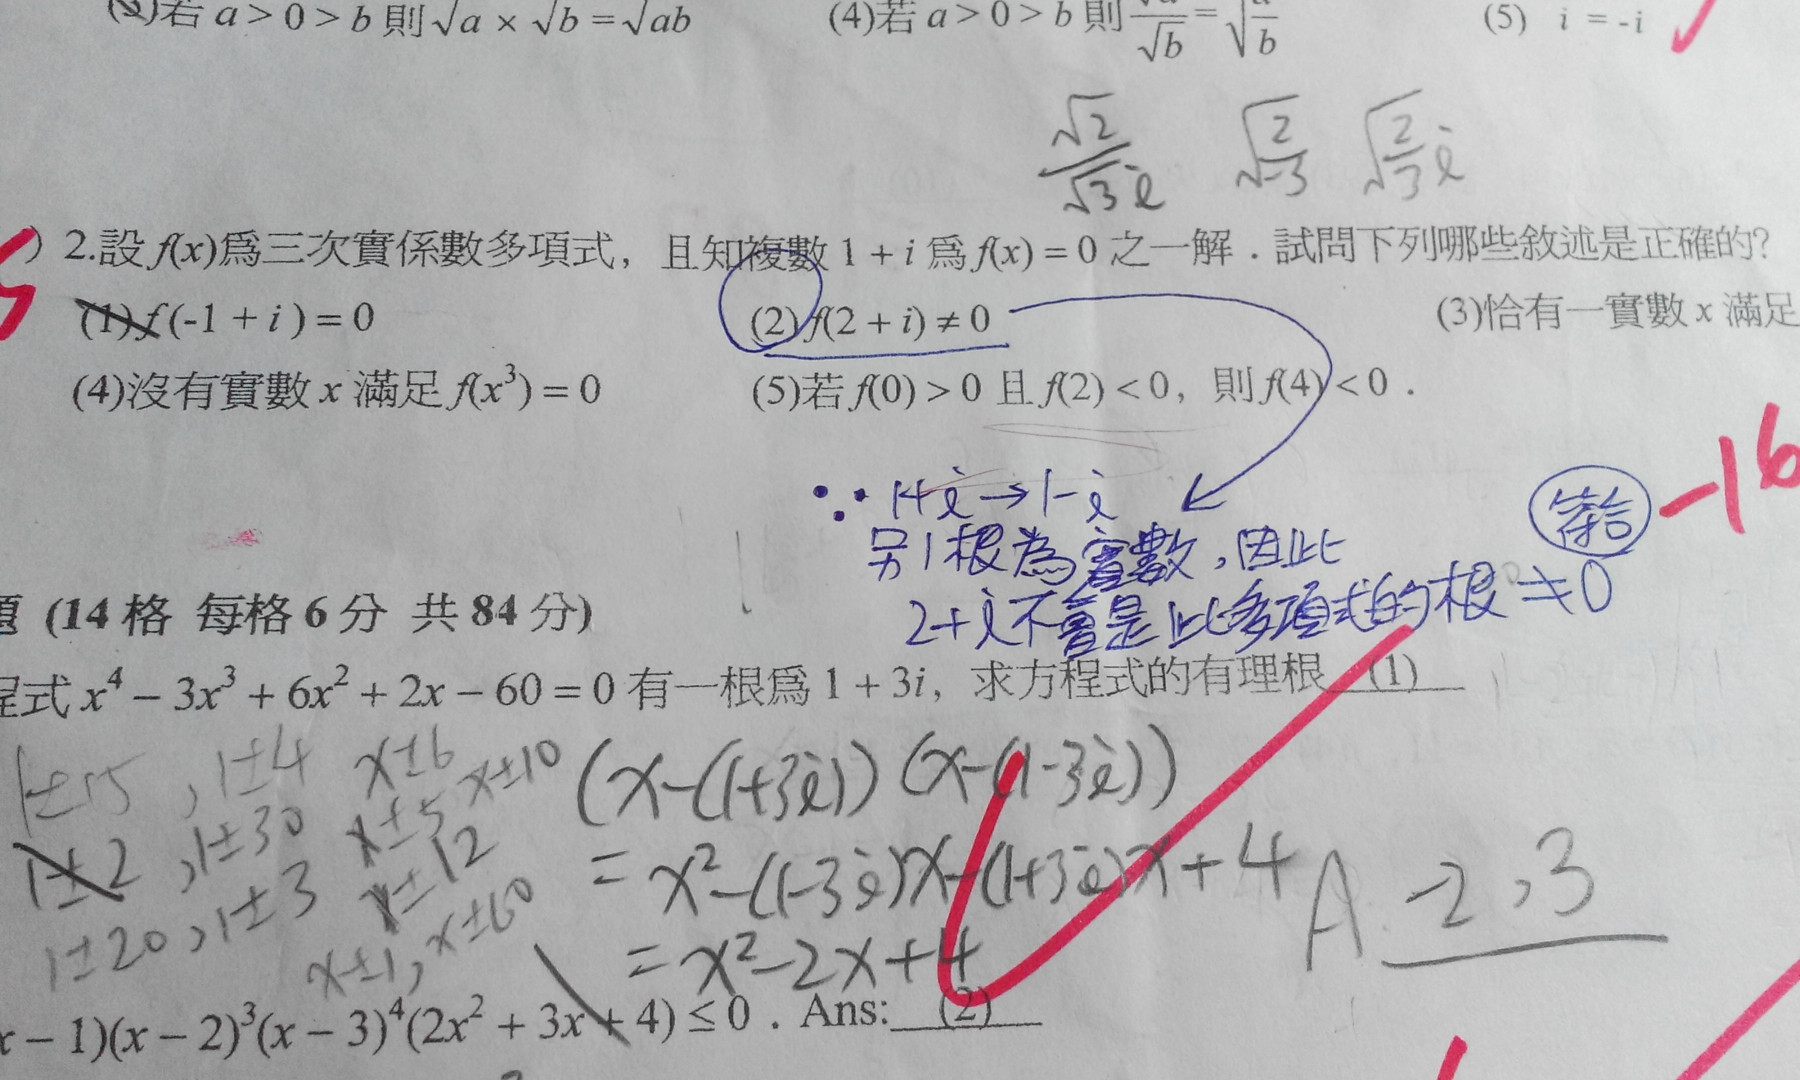 (3)若 a > 0 > b 則 √a × √b = √ab (4)若 a > 0 > b 則 √a/√b = √(a/b) (5) i = -i
√2/√3i √(2/-3) √(2/3)i
) 2.設 f(x)爲三次實係數多項式，且知複數 1 + i 爲 f(x) = 0 之一解．試問下列哪些敘述是正確的?
(1) f(-1 + i) = 0 (2) f(2 + i) ≠ 0 (3)恰有一實數 x 滿足
(4)沒有實數 x 滿足 f(x³) = 0 (5)若 f(0) > 0 且 f(2) < 0，則 f(4) < 0．
∵ 1+i → 1-i
另1根為實數,因此
2+i不會是此多項式的根 ≠0
符合
-16
題 (14 格 每格 6 分 共 84 分)
程式 x⁴ − 3x³ + 6x² + 2x − 60 = 0 有一根爲 1 + 3i，求方程式的有理根 (1)
1±15 , 1±4 x±6 x±10
(x-(1+3i))(x-(1-3i))
1±2 , 1±30 x±5 x±12
= x²-(1-3i)x-(1+3i)x+4
A. -2,3
1±20 , 1±3 x±1, x±60
= x²-2x+4
x − 1)(x − 2)³(x − 3)⁴(2x² + 3x + 4) ≤ 0．Ans: (2)